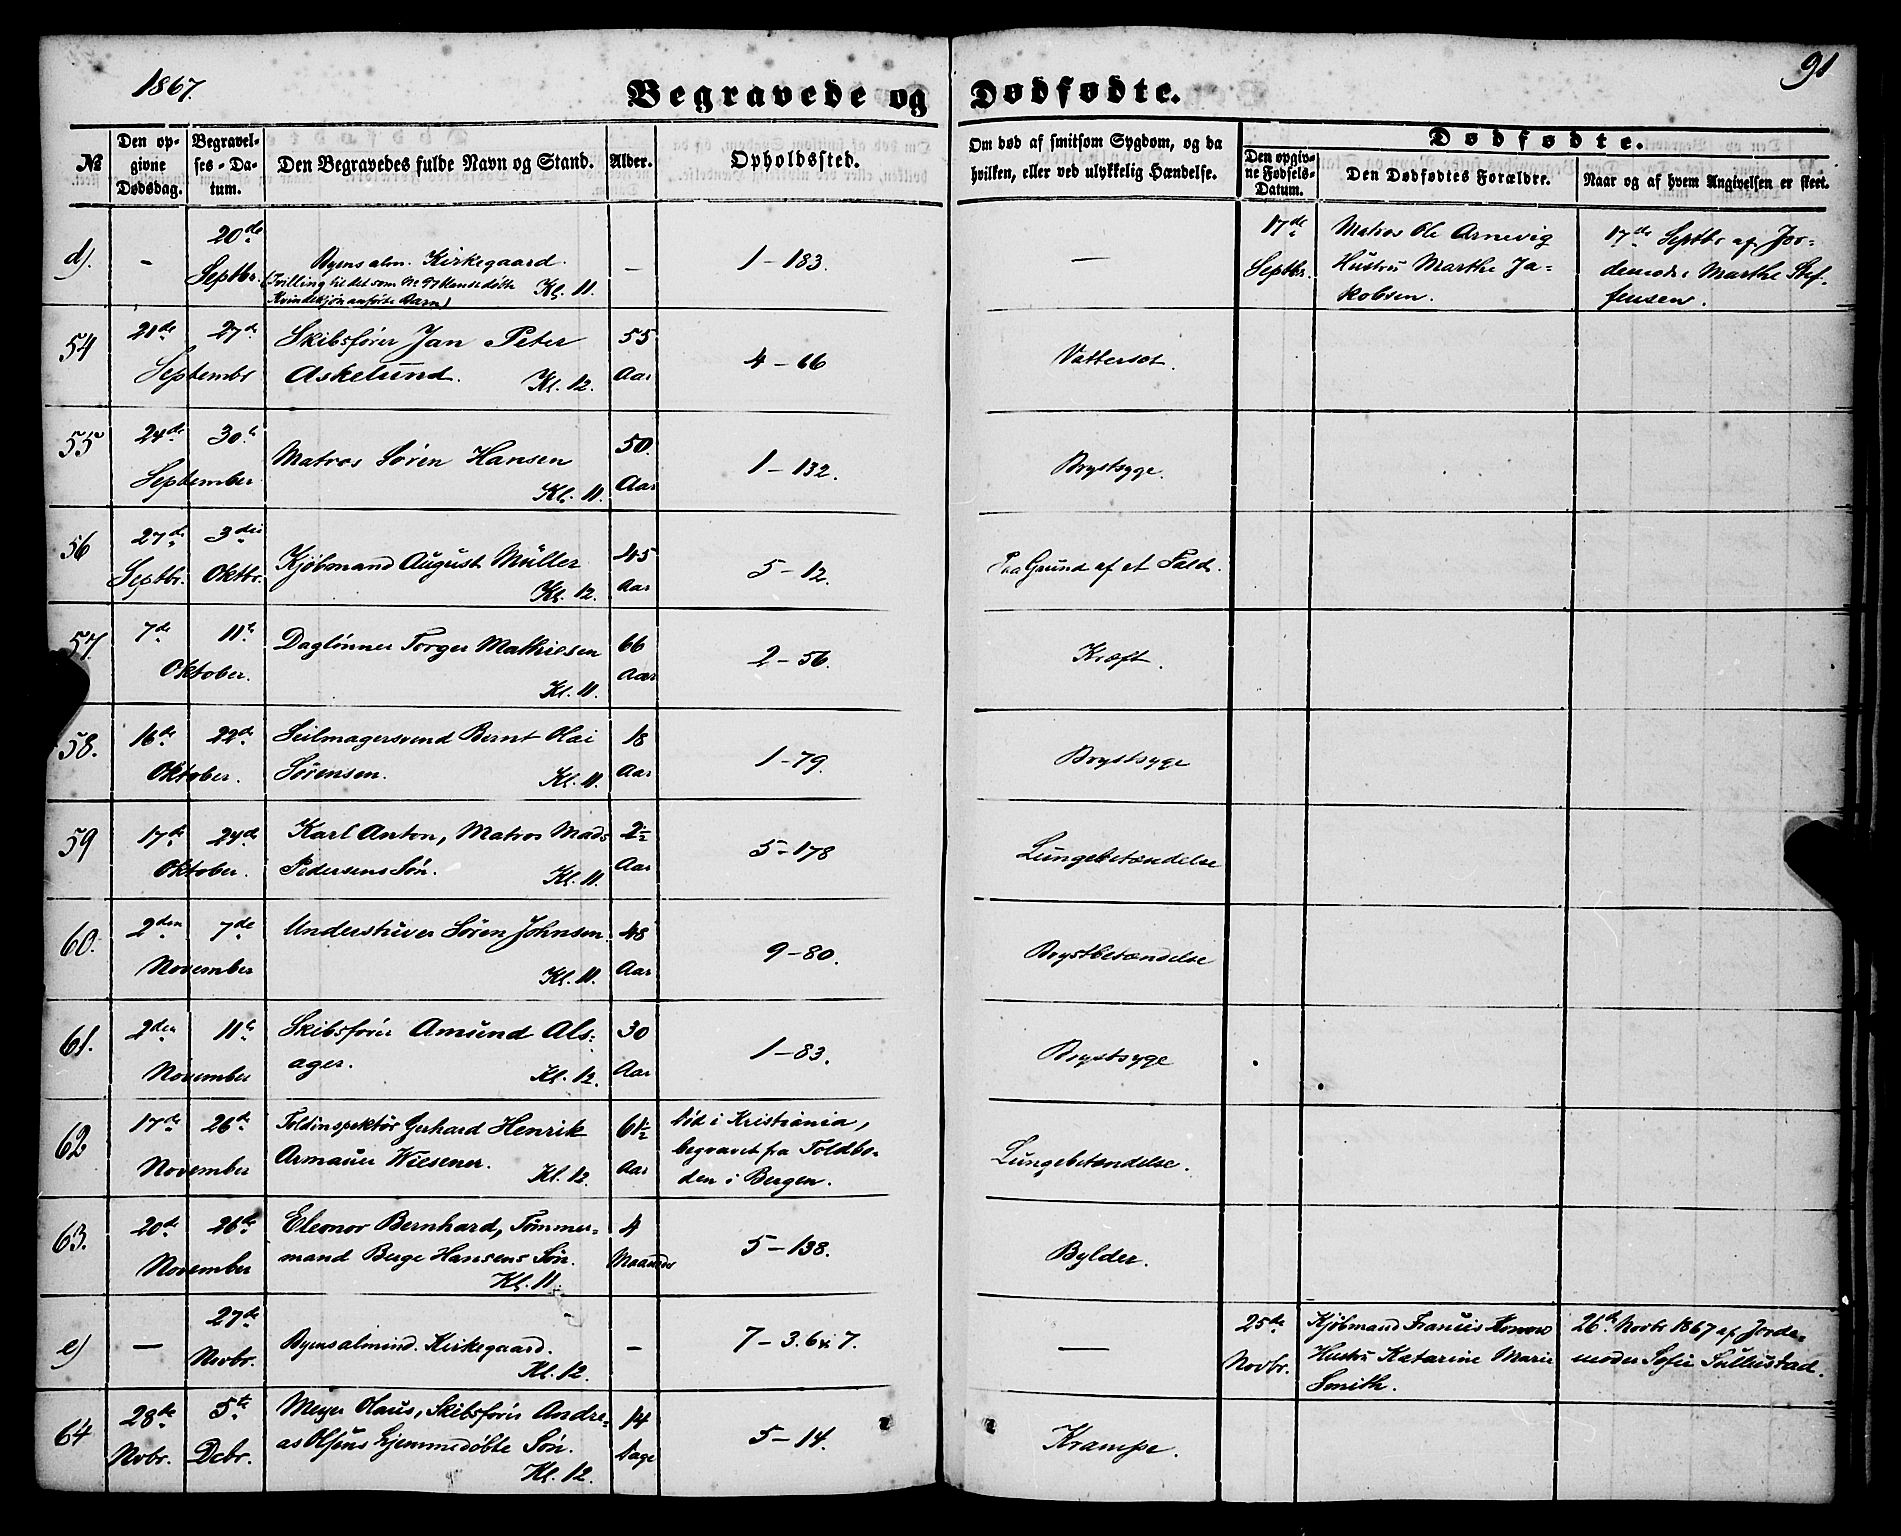 1867.
91
Begravede og Dødfødte.
№
Den opgivne Dødsdag.
Begravelses-Datum.
Den Begravedes fulde Navn og Stand.
Alder.
Opholdssted.
Om død af smitsom Sygdom, og da hvilken, eller ved ulykkelig Hændelse.
Dødfødte.
Den opgivne Fødsels-Datum.
Den Dødfødtes Forældre.
Naar og af hvem Angivelsen er skeet.
d). - 20de Septbr. Byens alm. Kirkegaard. - 1-183. — 17de Septbr. Matros Ole Arnevig 17de Septbr af Jor=
(Tvilling til det som No hjemmedøbte Hustru Marthe Ja= demoder Marthe Stef=
Kvindekjøn anførte Barn) Kl. 11. kobsen. fensen.
54 21de 27de Skibsfører Jan Peter 55 4-66 Vattersot.
September Askelund. Kl. 12. Aar
55 24de 30te Matros Sören Hansen 50 1-132. Brystsyge.
September Kl. 11. Aar
56 27de 3die Kjøbmand August Müller 45 5-12. Paa Grund af et Fald.
Septbr. Oktbr. Kl. 12. Aar
57. 7de 11te Daglønner Torger Mathiesen 66 2-56. Kræft.
Oktober. Kl. 11. Aar
58. 16de 22de Seilmagersvend Bernt Olai 18 1-79. Brystsyge
Oktober. Sørensen. Kl. 11. Aar
59 17de 24de Karl Anton, Matros Mads 2½ 5-178 Lungebetændelse
Oktober. Pedersens Søn. Kl. 11. Aar
60. 2den 7de Understuver Sören Johnsen. 48 9-80. Brystbetændelse
November Kl. 11. Aar
61. 2den 11te Skibsfører Amund Als= 30 1-83. Brystsyge
November ager. Kl. 12. Aar
62 17de 26de Toldinspektør Gerhard Henrik 61½ Død i Kristiania,
November Armauer Wiesener. Kl. 12. Aar begravet fra Toldbo= Lungebetændelse.
den i Bergen.
63. 20de 26de Eleonor Bernhard, Tømmer= 4 5-138. Bylder.
November mand Berge Hansens Søn. Maaneder
Kl. 11.
e) — 27de Novbr. Byens almind. Kirkegaard. - 7-3.6&7. — 25de Novbr. Kjøbmand Francis Konow 26de Novbr 1867 af Jorde=
Kl. 12. Hustru Katarine Marie moder Sofie Sullustad.
Smith.
64 28de 5te Meyer Olaus, Skibsfører Andre= 14 5-14. Krampe.
Novbr. Decbr. as Olsens hjemmedøbte Søn. Dage
Kl. 12.